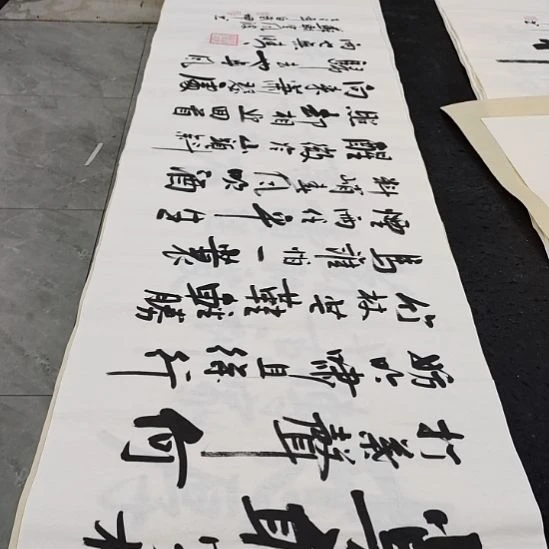 莫聽穿林
打葉聲何
妨吟嘯且徐行
竹杖芒鞋輕勝
馬誰怕一蓑
煙雨任平生
料峭春風吹酒
醒微冷山頭斜
照却相迎回首
向来蕭瑟處
歸去也無風
雨也無晴